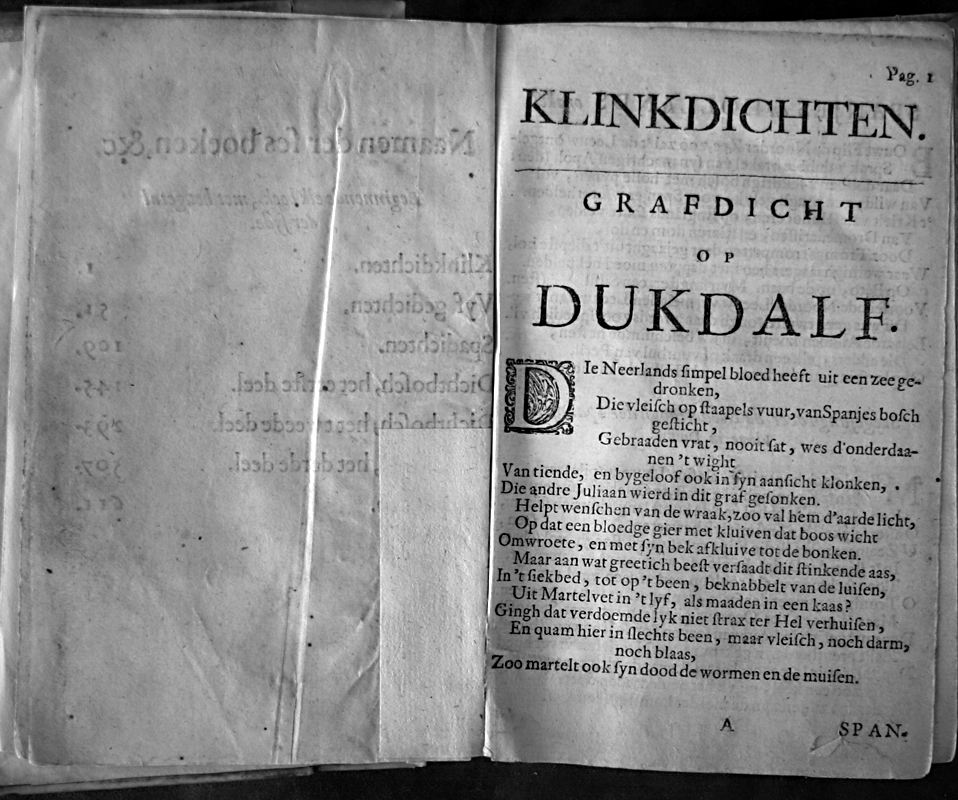 Naamen der ses boeken &c.
Klinkdichten. 1.
Vyf gedichten. 51.
Spadichten. 109.
Dichtbosch, het eerste deel. 145.
Dichtbosch, het tweede deel. 293.
, het darde deel. 507.
Pag. 1
KLINKDICHTEN.
GRAFDICHT
OP
DUKDALF.
DIe Neerlands ſimpel bloed heeft uit een zee ge-
dronken,
Die vleiſch op ſtaapels vuur, van Spanjes boſch
geſticht,
Gebraaden vrat, nooit ſat, wes d'onderdaa-
nen 't wight
Van tiende, en bygeloof ook in ſyn aanſicht klonken,
Die andre Juliaan wierd in dit graf geſonken.
Helpt wenſchen van de wraak, zoo val hem d'aarde licht,
Op dat een bloedge gier met kluiven dat boos wicht
Omwroete, en met ſyn bek afkluive tot de bonken.
Maar aan wat greetich beeſt verſaadt dit ſtinkende aas,
In 't ſiekbed, tot op 't been, beknabbelt van de luiſen,
Uit Martelvet in 't lyf, als maaden in een kaas?
Gingh dat verdoemde lyk niet ſtrax ter Hel verhuiſen,
En quam hier in ſlechts been, maar vleiſch, noch darm,
noch blaas,
Zoo martelt ook ſyn dood de wormen en de muiſen.
A
SPAN-